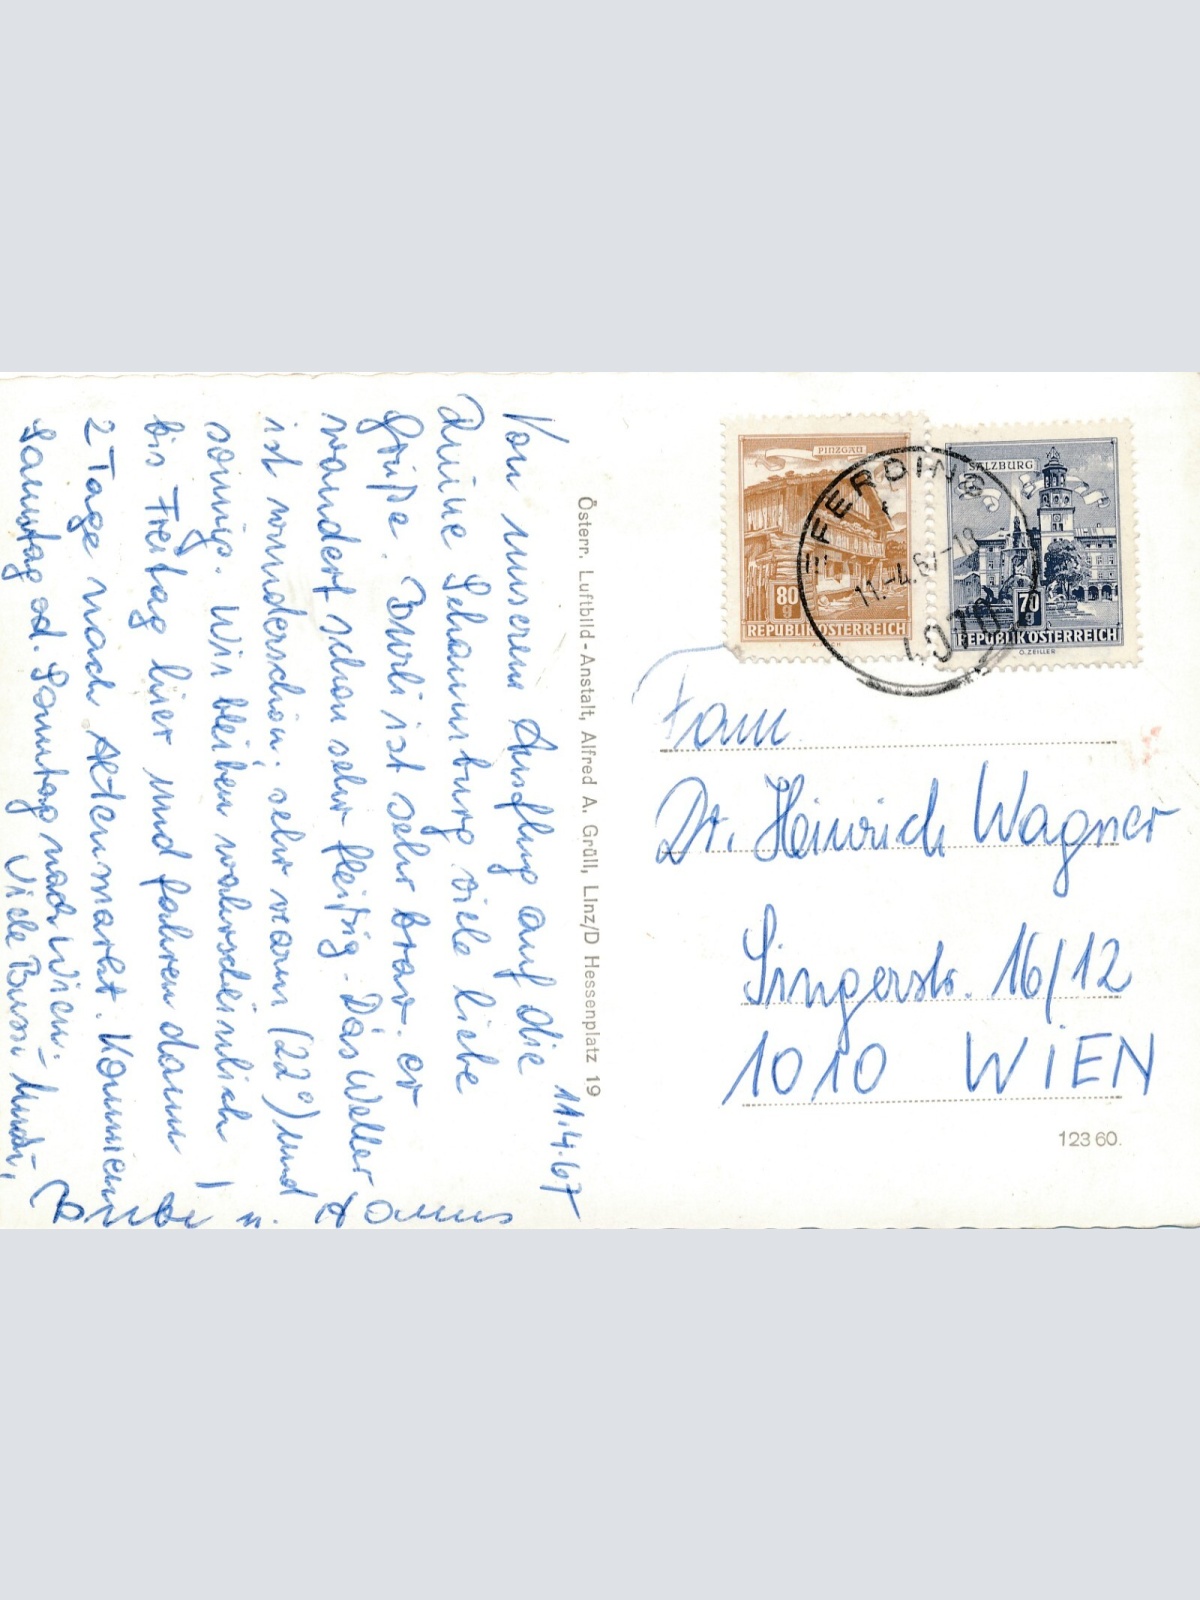 11.4.67
Von unserem Ausflug auf die
Ruine Schaumburg viele liebe
Grüße. Burli ist sehr brav. er
wandert schon sehr fleißig. Das Wetter
ist wunderschön. sehr warm (22°) und
sonnig. Wir bleiben wahrscheinlich
bis Freitag hier und fahren dann
2 Tage nach Aktenmarkt. Kommen
Samstag od. Sonntag nach Wien.
Viele Bussi Mundi,
u. Hannes
Österr. Luftbild-Anstalt, Alfred A. Grüll, Linz/D Hessenplatz 19
PINZGAU
80
g
REPUBLIK ÖSTERREICH
SALZBURG
70
g
REPUBLIK ÖSTERREICH
G. ZEILLER
EFERDING
11.-4.67-18
4070
Fam.
Dr. Heinrich Wagner
Singerstr. 16/12
1010 WIEN
123 60.